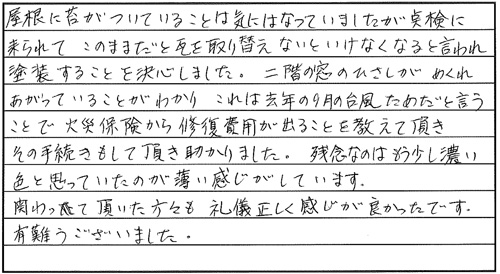 屋根に苔がついていることは気にはなっていましたが点検に
来られて このままだと瓦を取り替えないといけなくなると言われ
塗装することを決心しました。二階の窓のひさしが めくれ
あがっていることがわかり これは去年の9月の台風ためだと言う
ことで 火災保険から修復費用が出ることを教えて頂き
その手続きもして頂き助かりました。残念なのはもう少し濃い
色と思っていたのが薄い感じがしています.
関わって頂いた方々も 礼儀正しく感じが良かったです.
有難うございました。